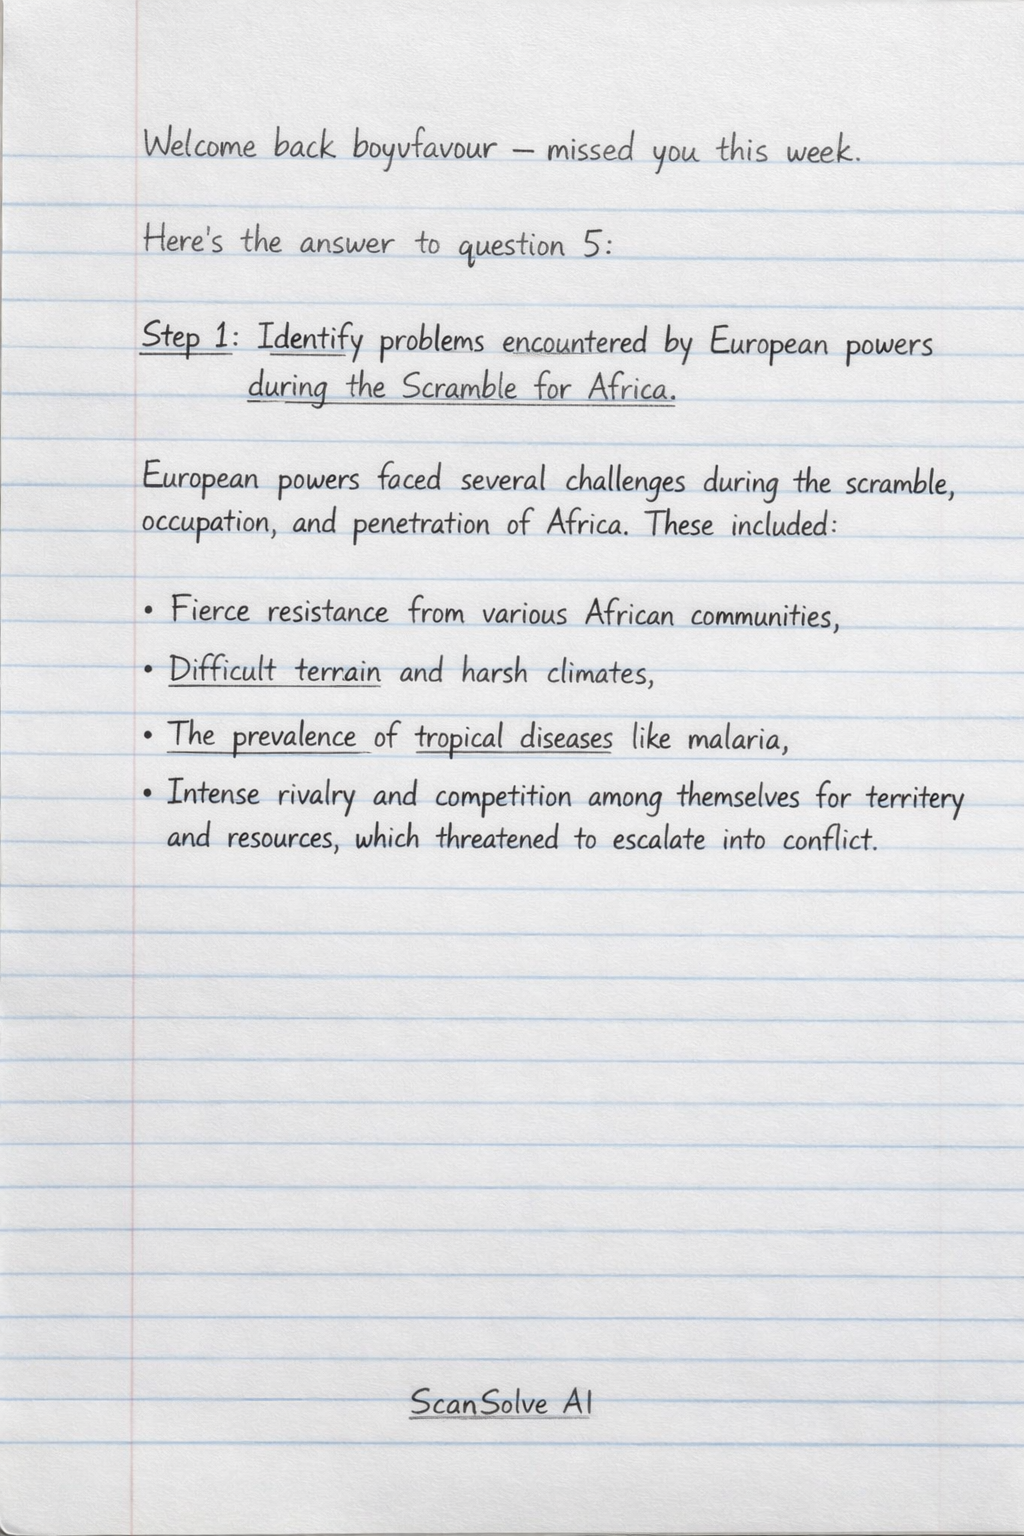 Welcome back boyvfavour – missed you this week.
Here's the answer to question 5:
Step 1: Identify problems encountered by European powers
during the Scramble for Africa.
European powers faced several challenges during the scramble,
occupation, and penetration of Africa. These included:
• Fierce resistance from various African communities,
• Difficult terrain and harsh climates,
• The prevalence of tropical diseases like malaria,
• Intense rivalry and competition among themselves for territery
and resources, which threatened to escalate into conflict.
ScanSolve AI